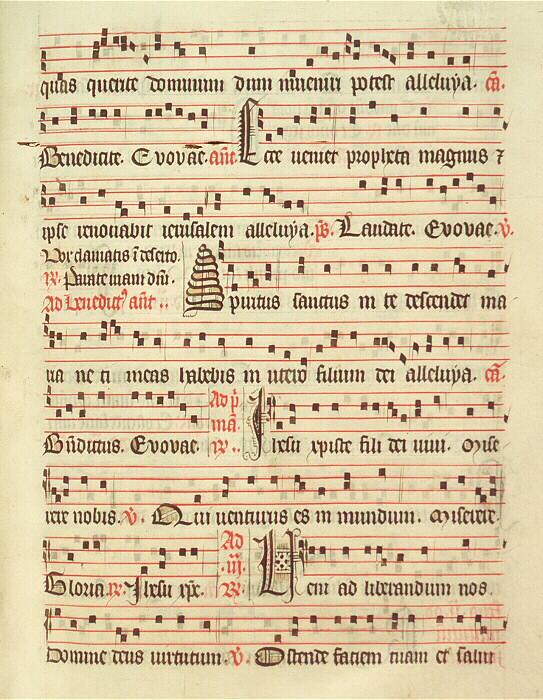 quas querite dominum dum inveniri potest alleluya. ca.
Benedicite. Evovae. ant. Ecce veniet propheta magnus ⁊
ipse renovabit ierusalem alleluya. ps. Laudate. Evovae. v.
Vox clamantis i deserto.
R. Parate viam dni.
Ad benedict9 ant. Spiritus sanctus in te descendet ma
ria ne ti meas habebis in utero filium dei alleluya. ca.
Bndictus. Evovae. Ad pri mam. R. Ihesu xpiste fili dei vivi. Mise
rere nobis. v. Qui venturus es in mundum. Miserere.
Gloria. R. Ihesu xpe. Ad iii. R. Veni ad liberandum nos.
Domine deus virtutum. v. Ostende faciem tuam et salvi